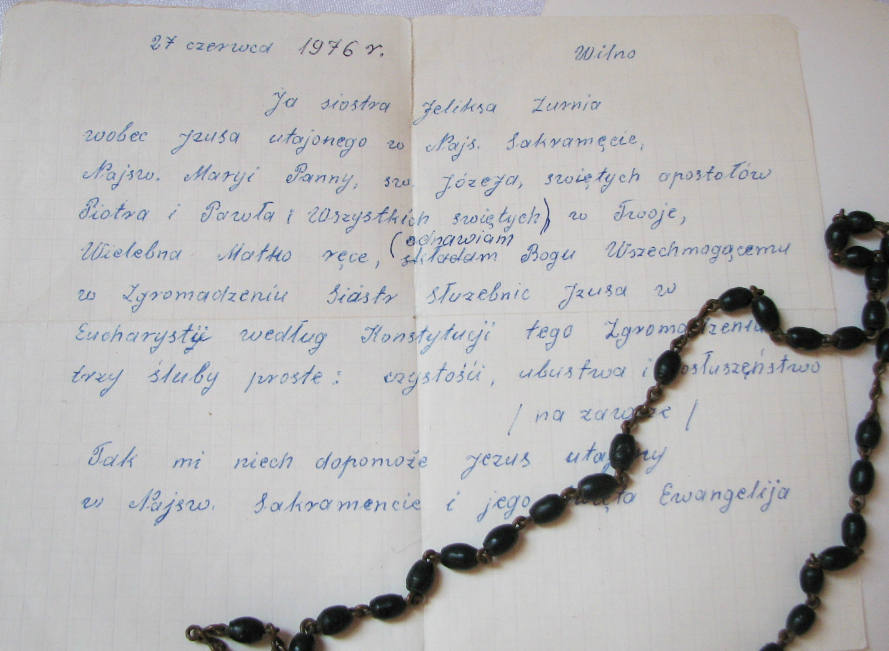 27 czerwca 1976 r. Wilno
Ja siostra Feliksa Żurnia
wobec Jzusa utajonego w Najś. Sakramęcie,
Najsw. Maryi Panny, sw. Józefa, swiętych apostołów
Piotra i Pawła i Wszystkich swiętych) w Twoje,
(odnawiam
Wielebna Matko ręce, składam Bogu Wszechmogącemu
w Zgromadzeniu Sióstr Służebnic Jzusa w
Eucharystji według Konstytucji tego Zgromadzenia
trzy śluby proste: czystości, ubustwa i posłuszęństwo
/ na zawsze /
Tak mi niech dopomoże Jezus utajony
w Najsw. Sakramencie i jego święta Ewangelija